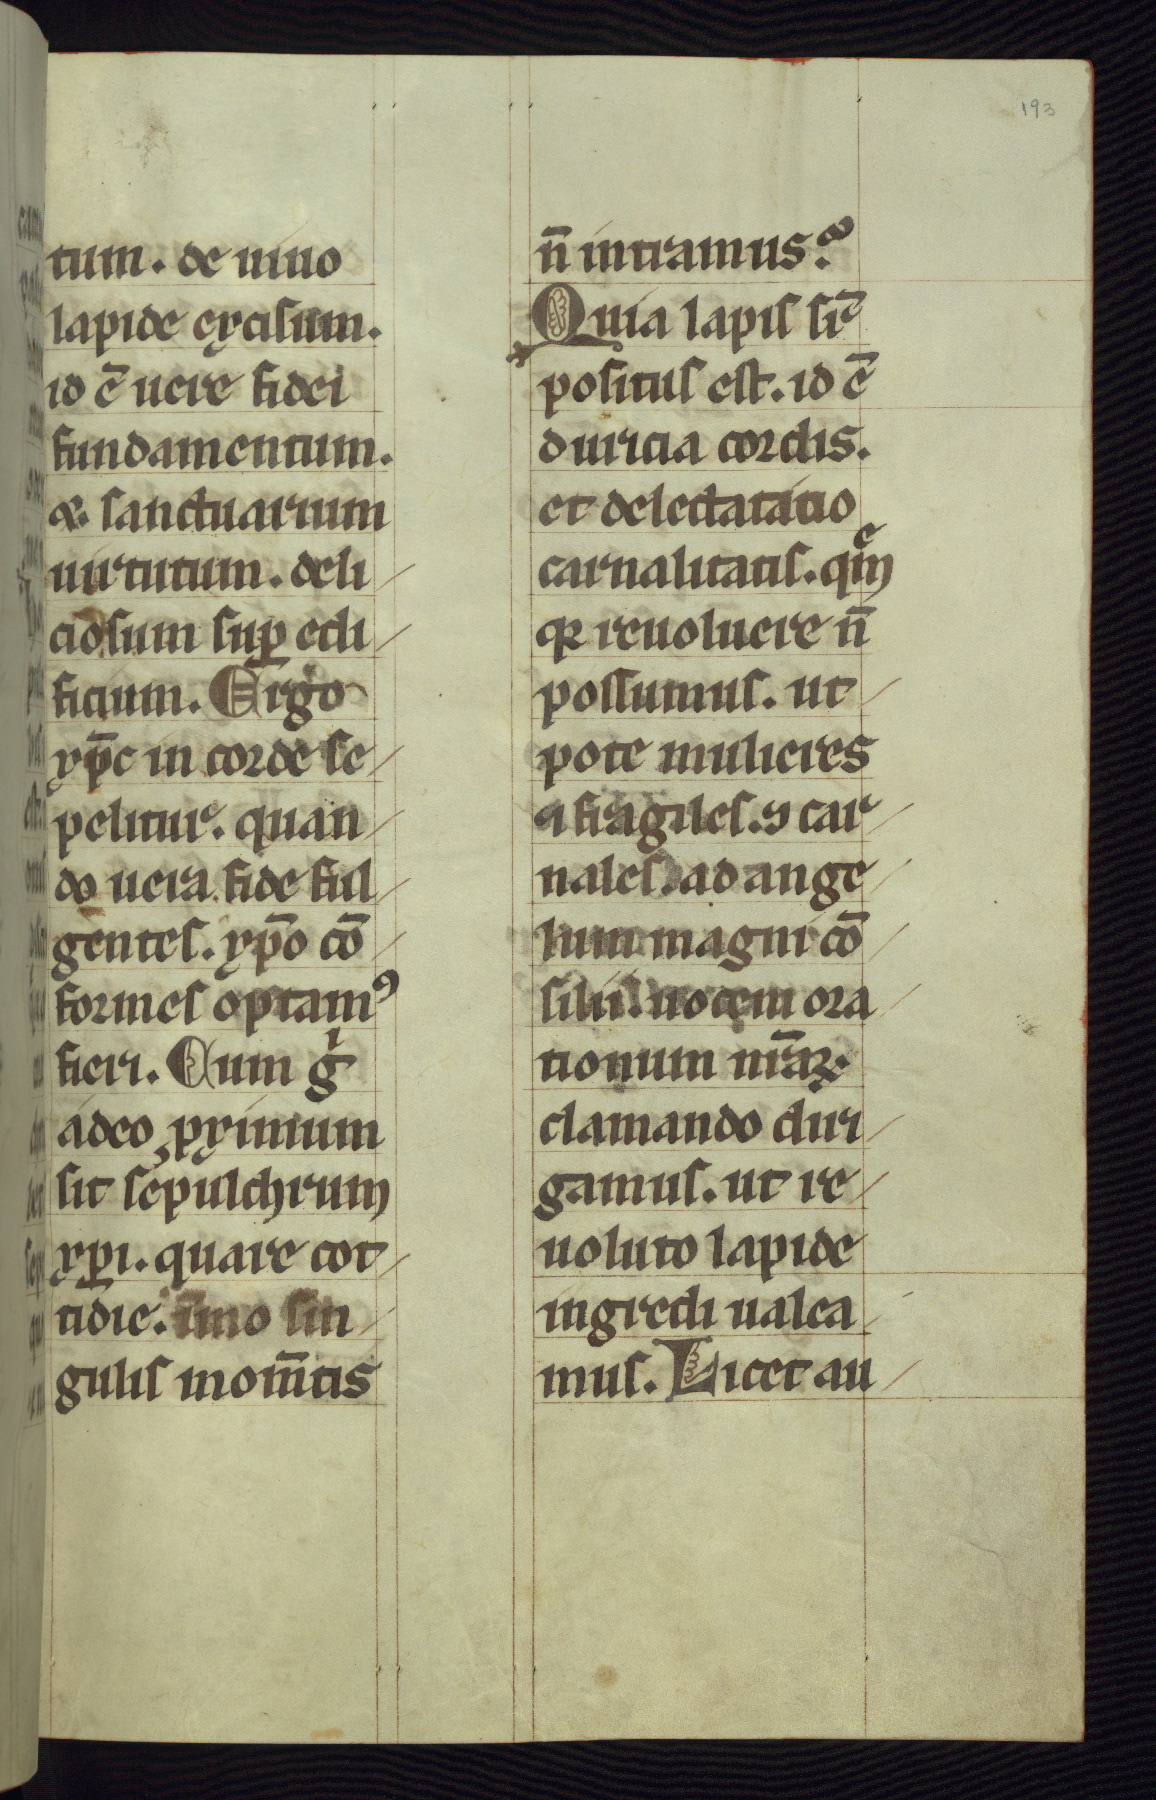 193
tum. de uiuo
lapide excisum.
id ē uere fidei
fundamentum.
⁊. sanctuarium
uirtutum. deli
ciosum suꝑ edi
ficium. Ergo
xp̄c in corde se
pelitur. quan
do uera fide ful
gentes. xp̄o cō
formes optamꝰ
fieri. Cum gͥ
adeo ꝓximum
sit sepulchrum
xp̄i. quare cot
tidie. īmo sin
gulis mom̄tis
n̄ intramus?
Quia lapis sic̄
positus est. id ē
duricia cordis.
et delectatatio
carnalitatis. qͤm
qꝛ reuoluere n̄
possumus. ut
pote mulieres
a fragiles. ⁊ car
nales. ad ange
lum magni cō
silii. uocem ora
tionum nr̄aꝝ.
clamando diri
gamus. ut re
uoluto lapide
ingredi ualea
mus. Licet au